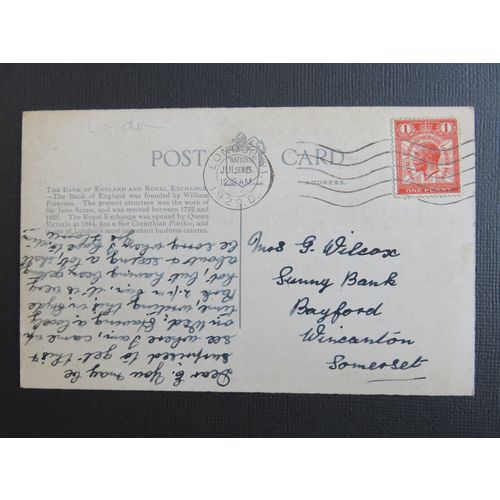 London
POST CARD
THE BANK OF ENGLAND AND ROYAL EXCHANGE
—The Bank of England was founded by William
Paterson. The present structure was the work of
Sir John Soane, and was erected between 1732 and
1829. The Royal Exchange was opened by Queen
Victoria in 1844, has a fine Corinthian Portico, and
one of London's most important business centres.
ADDRESS.
LONDON
NATIONAL
JUL
12.15 AM
1929
1 1
ONE PENNY
Mrs G. Wilcox
Sunny Bank
Bayford
Wincanton
Somerset
Dear E. You may be
surprised to get this &
see where I am, came up
on Wed, Having a lovely
time writing this in Hyde
Park 2/- it is very
hot, but having been getting
about & seeing a lot shall
be sorry when